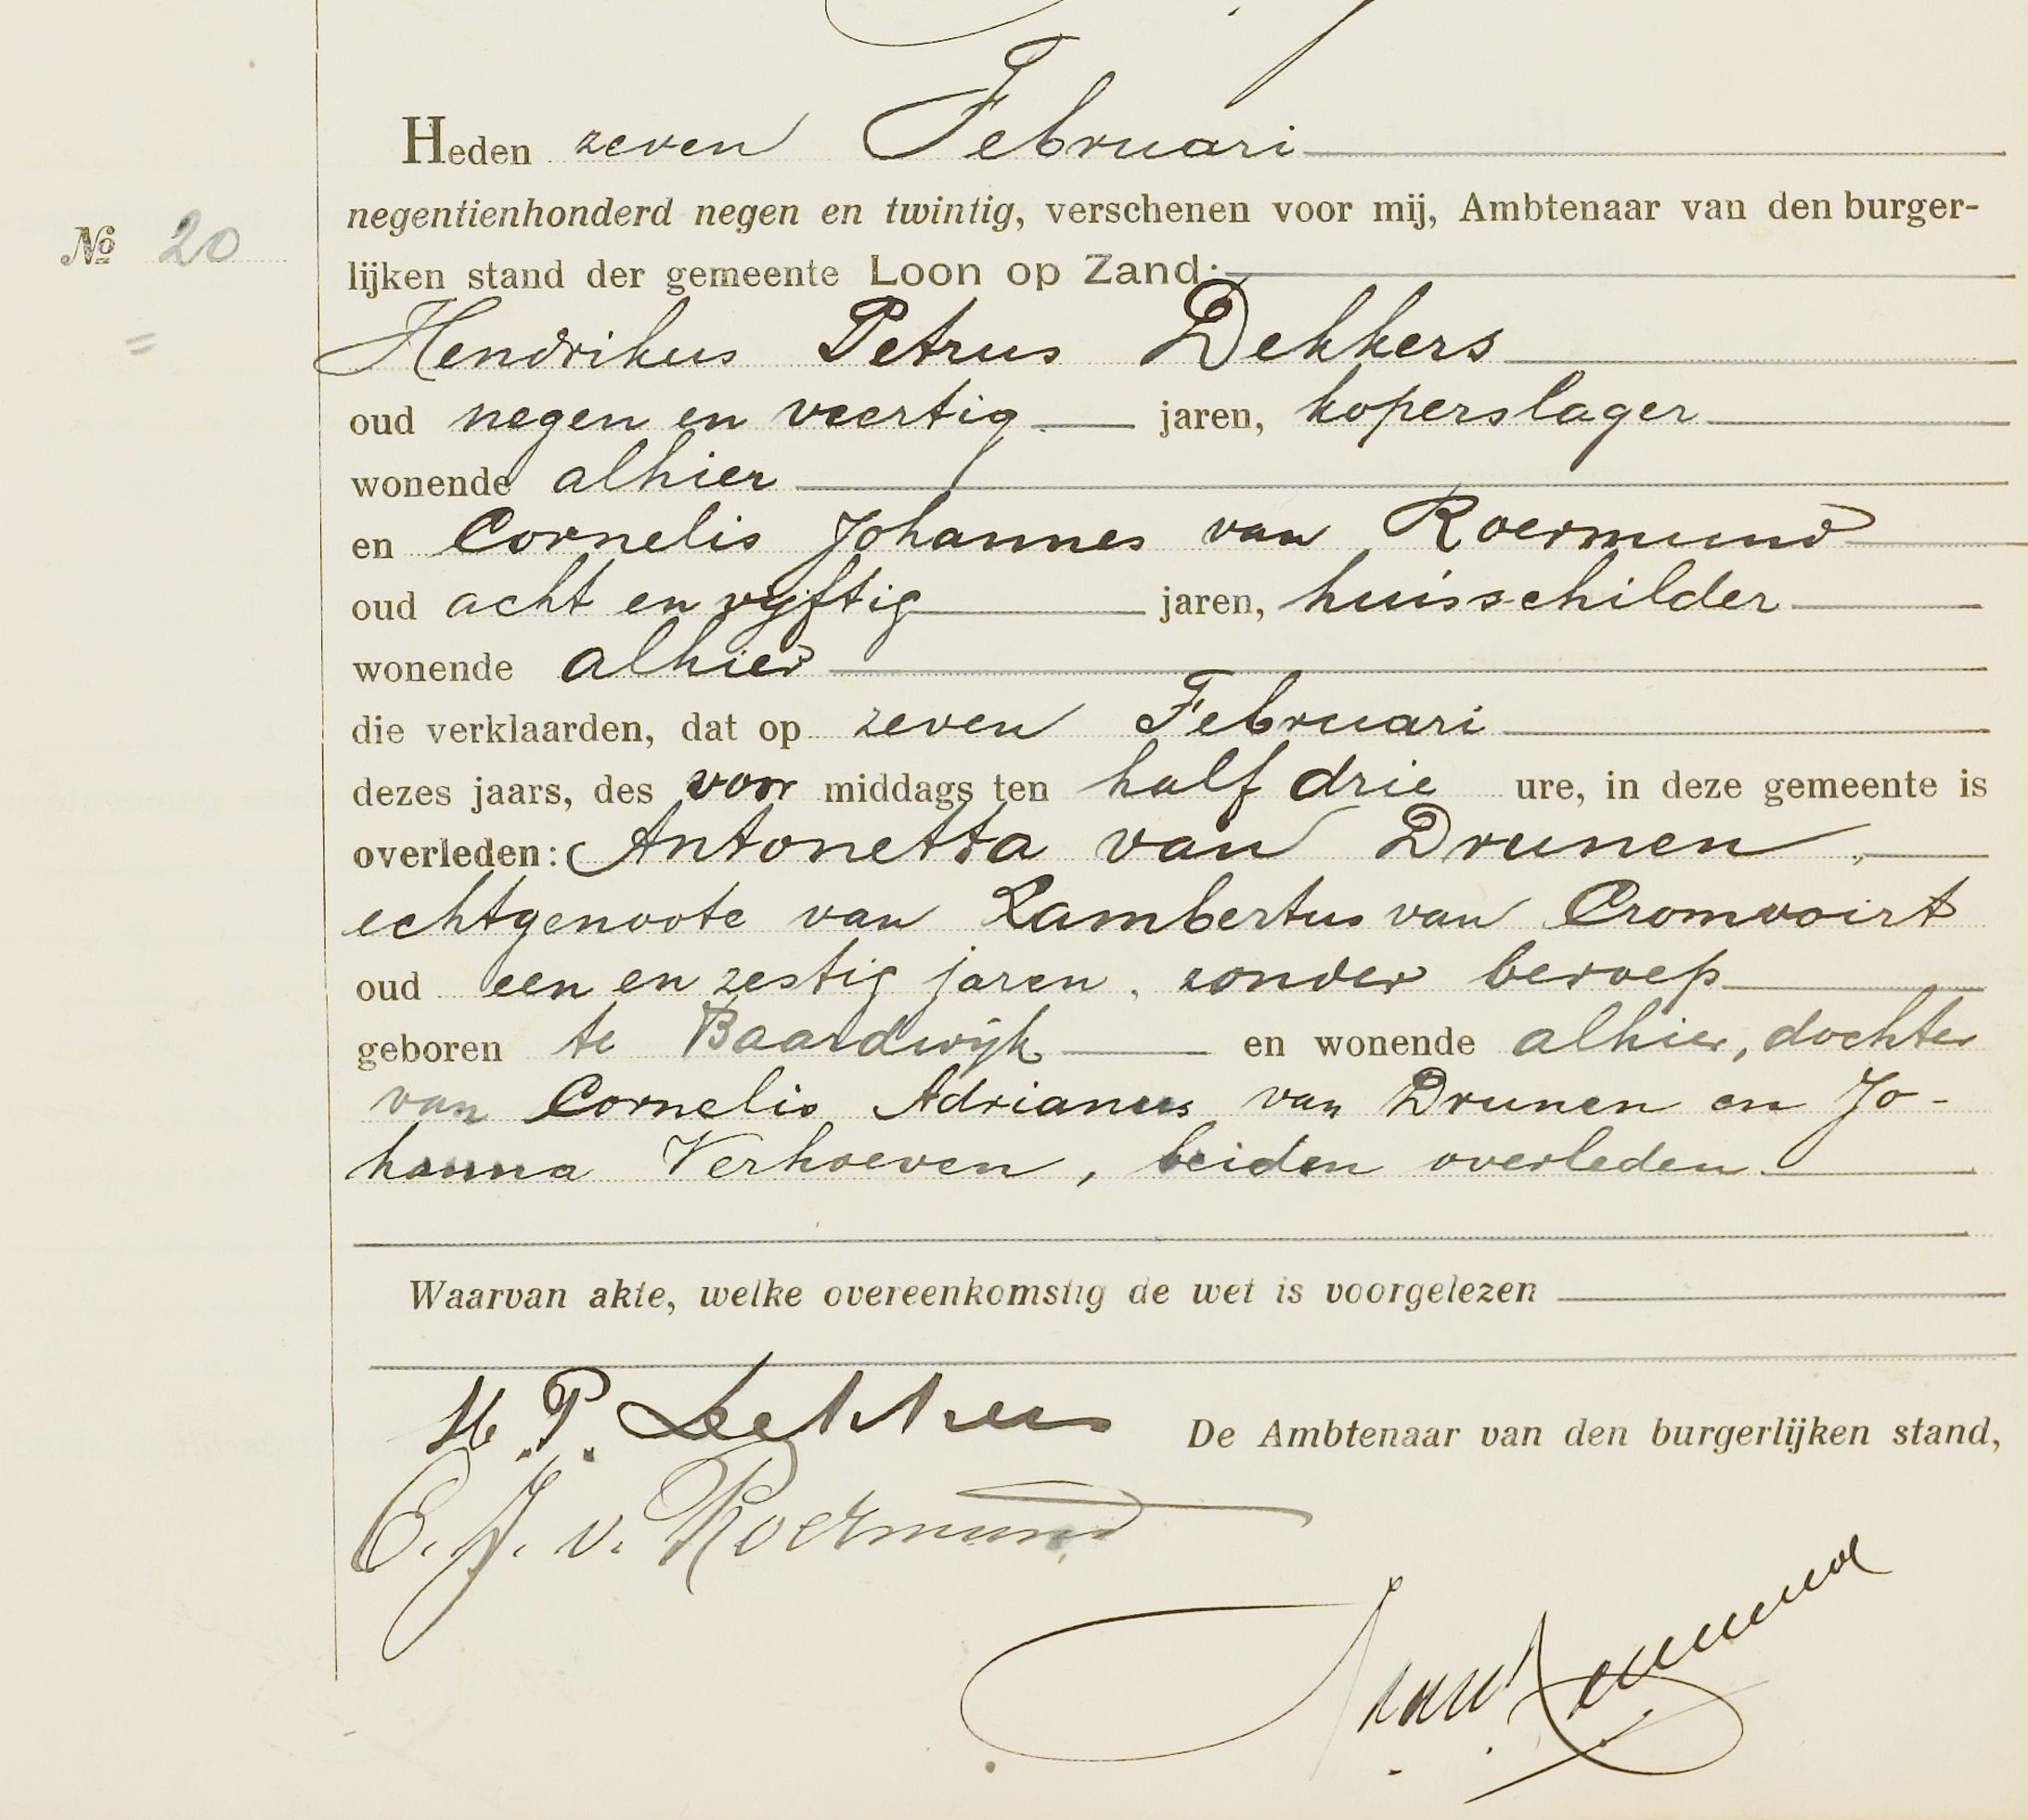 Heden zeven Februari
negentienhonderd negen en twintig, verschenen voor mij, Ambtenaar van den burger-
No 20
lijken stand der gemeente Loon op Zand:
Hendrikus Petrus Dekkers
oud negen en veertig jaren, koperslager
wonende alhier
en Cornelis Johannes van Roermund
oud acht en vijftig jaren, huisschilder
wonende alhier
die verklaarden, dat op zeven Februari
dezes jaars, des voor middags ten half drie ure, in deze gemeente is
overleden: Antonetta van Drunen,
echtgenoote van Lambertus van Cromvoirt
oud een en zestig jaren, zonder beroep
geboren te Baardwijk en wonende alhier, dochter
van Cornelis Adrianus van Drunen en Jo-
hanna Verhoeven, beiden overleden
Waarvan akte, welke overeenkomstig de wet is voorgelezen
H. P. Dekkers
De Ambtenaar van den burgerlijken stand,
C. J. v. Roermund